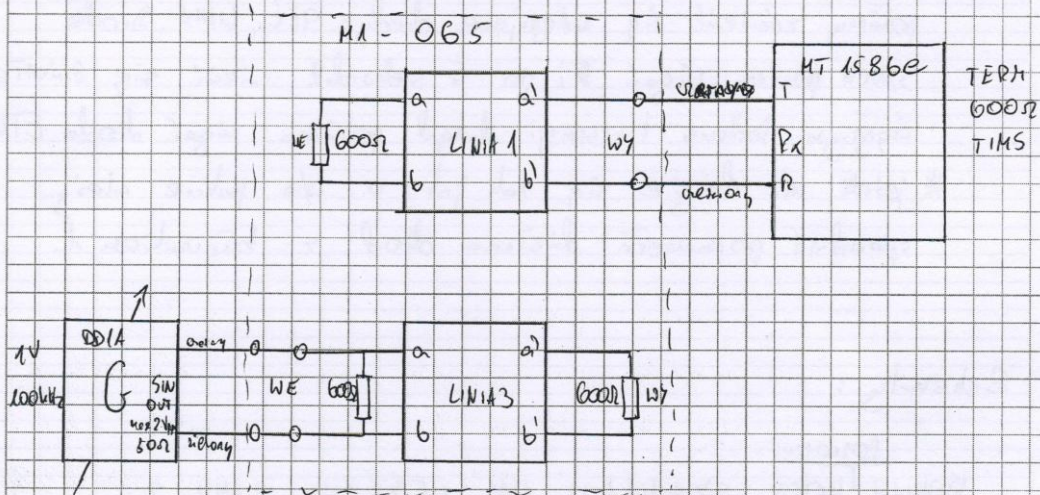 M1 - 065
WE
600Ω
a
b
LINIA 1
a'
b'
WY
czerwony
zielony
MT 1586e
T
Rx
R
TERM
600Ω
TIMS
1V
100kHz
DD1A
G
SIN
OUT
max 2Vpp
50Ω
czarny
zielony
WE
600Ω
a
b
LINIA 3
a'
b'
600Ω
WY